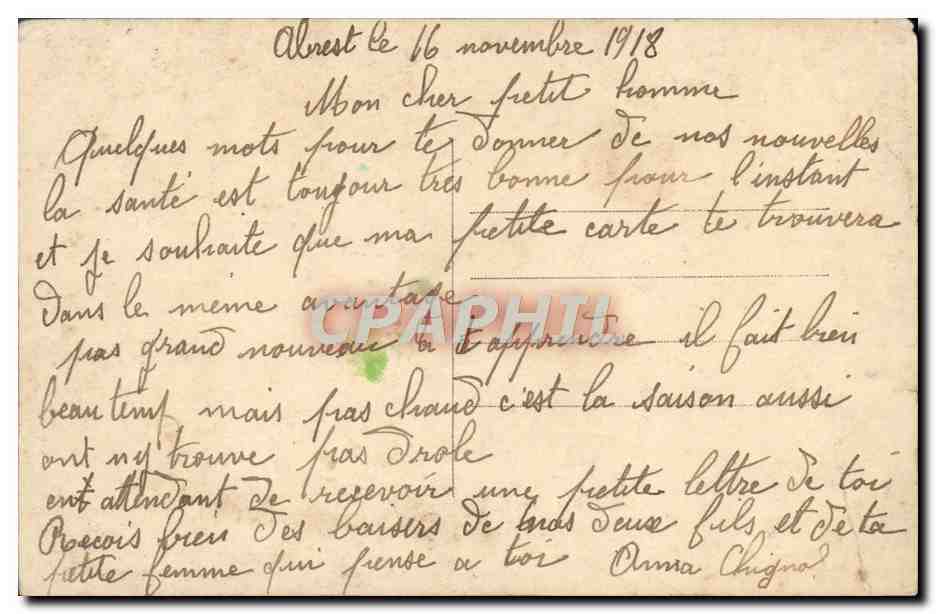 Abrest le 16 novembre 1918
Mon cher petit homme
Quelques mots pour te donner de nos nouvelles
la santé est toujour tres bonne pour l'instant
et je souhaite que ma petite carte te trouvera
dans le même avantage
CPAPHIL
pas grand nouveau à t apprendre il fait bien
beau temp mais pas chaud c'est la saison aussi
ont ny trouve pas drole
ent attendant de recevoir une petite lettre de toi
Recois bien des baisers de nos deux fils et de ta
petite femme qui pense a toi Anna